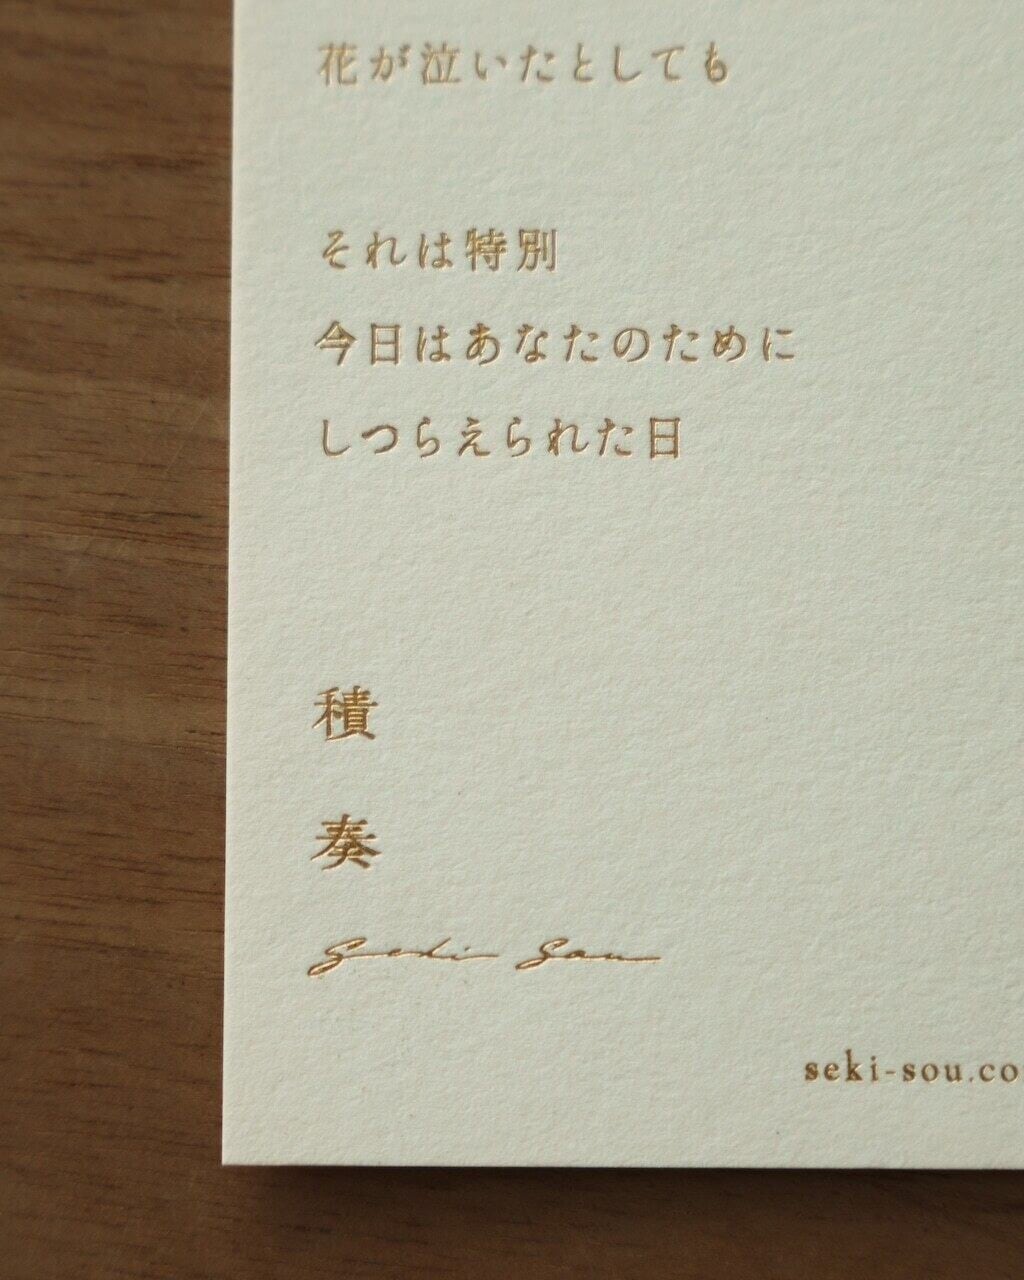 花が泣いたとしても
それは特別
今日はあなたのために
しつらえられた日
積
奏
Seki Sou
seki-sou.co